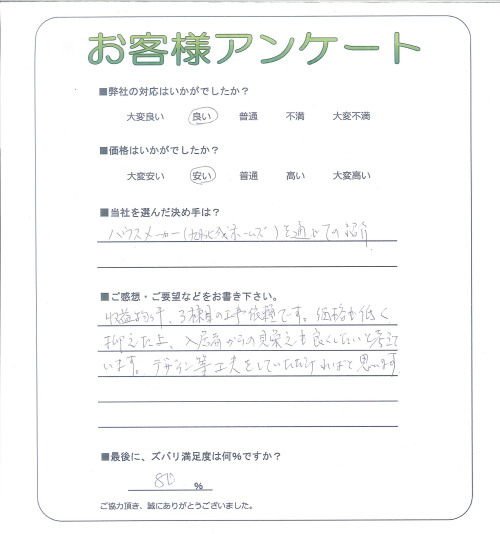 お客様アンケート
■弊社の対応はいかがでしたか?
大変良い 良い 普通 不満 大変不満
■価格はいかがでしたか?
大変安い 安い 普通 高い 大変高い
■当社を選んだ決め手は?
ハウスメーカー(旭化成ホームズ)を通じての紹介
■ご感想・ご要望などをお書き下さい。
収益物件、3棟目の工事依頼です。価格を低く
抑えた上、入居者からの見栄えも良くしたいと考えて
います。デザイン等工夫をしていただければと思います
■最後に、ズバリ満足度は何%ですか?
80 %
ご協力頂き、誠にありがとうございました。